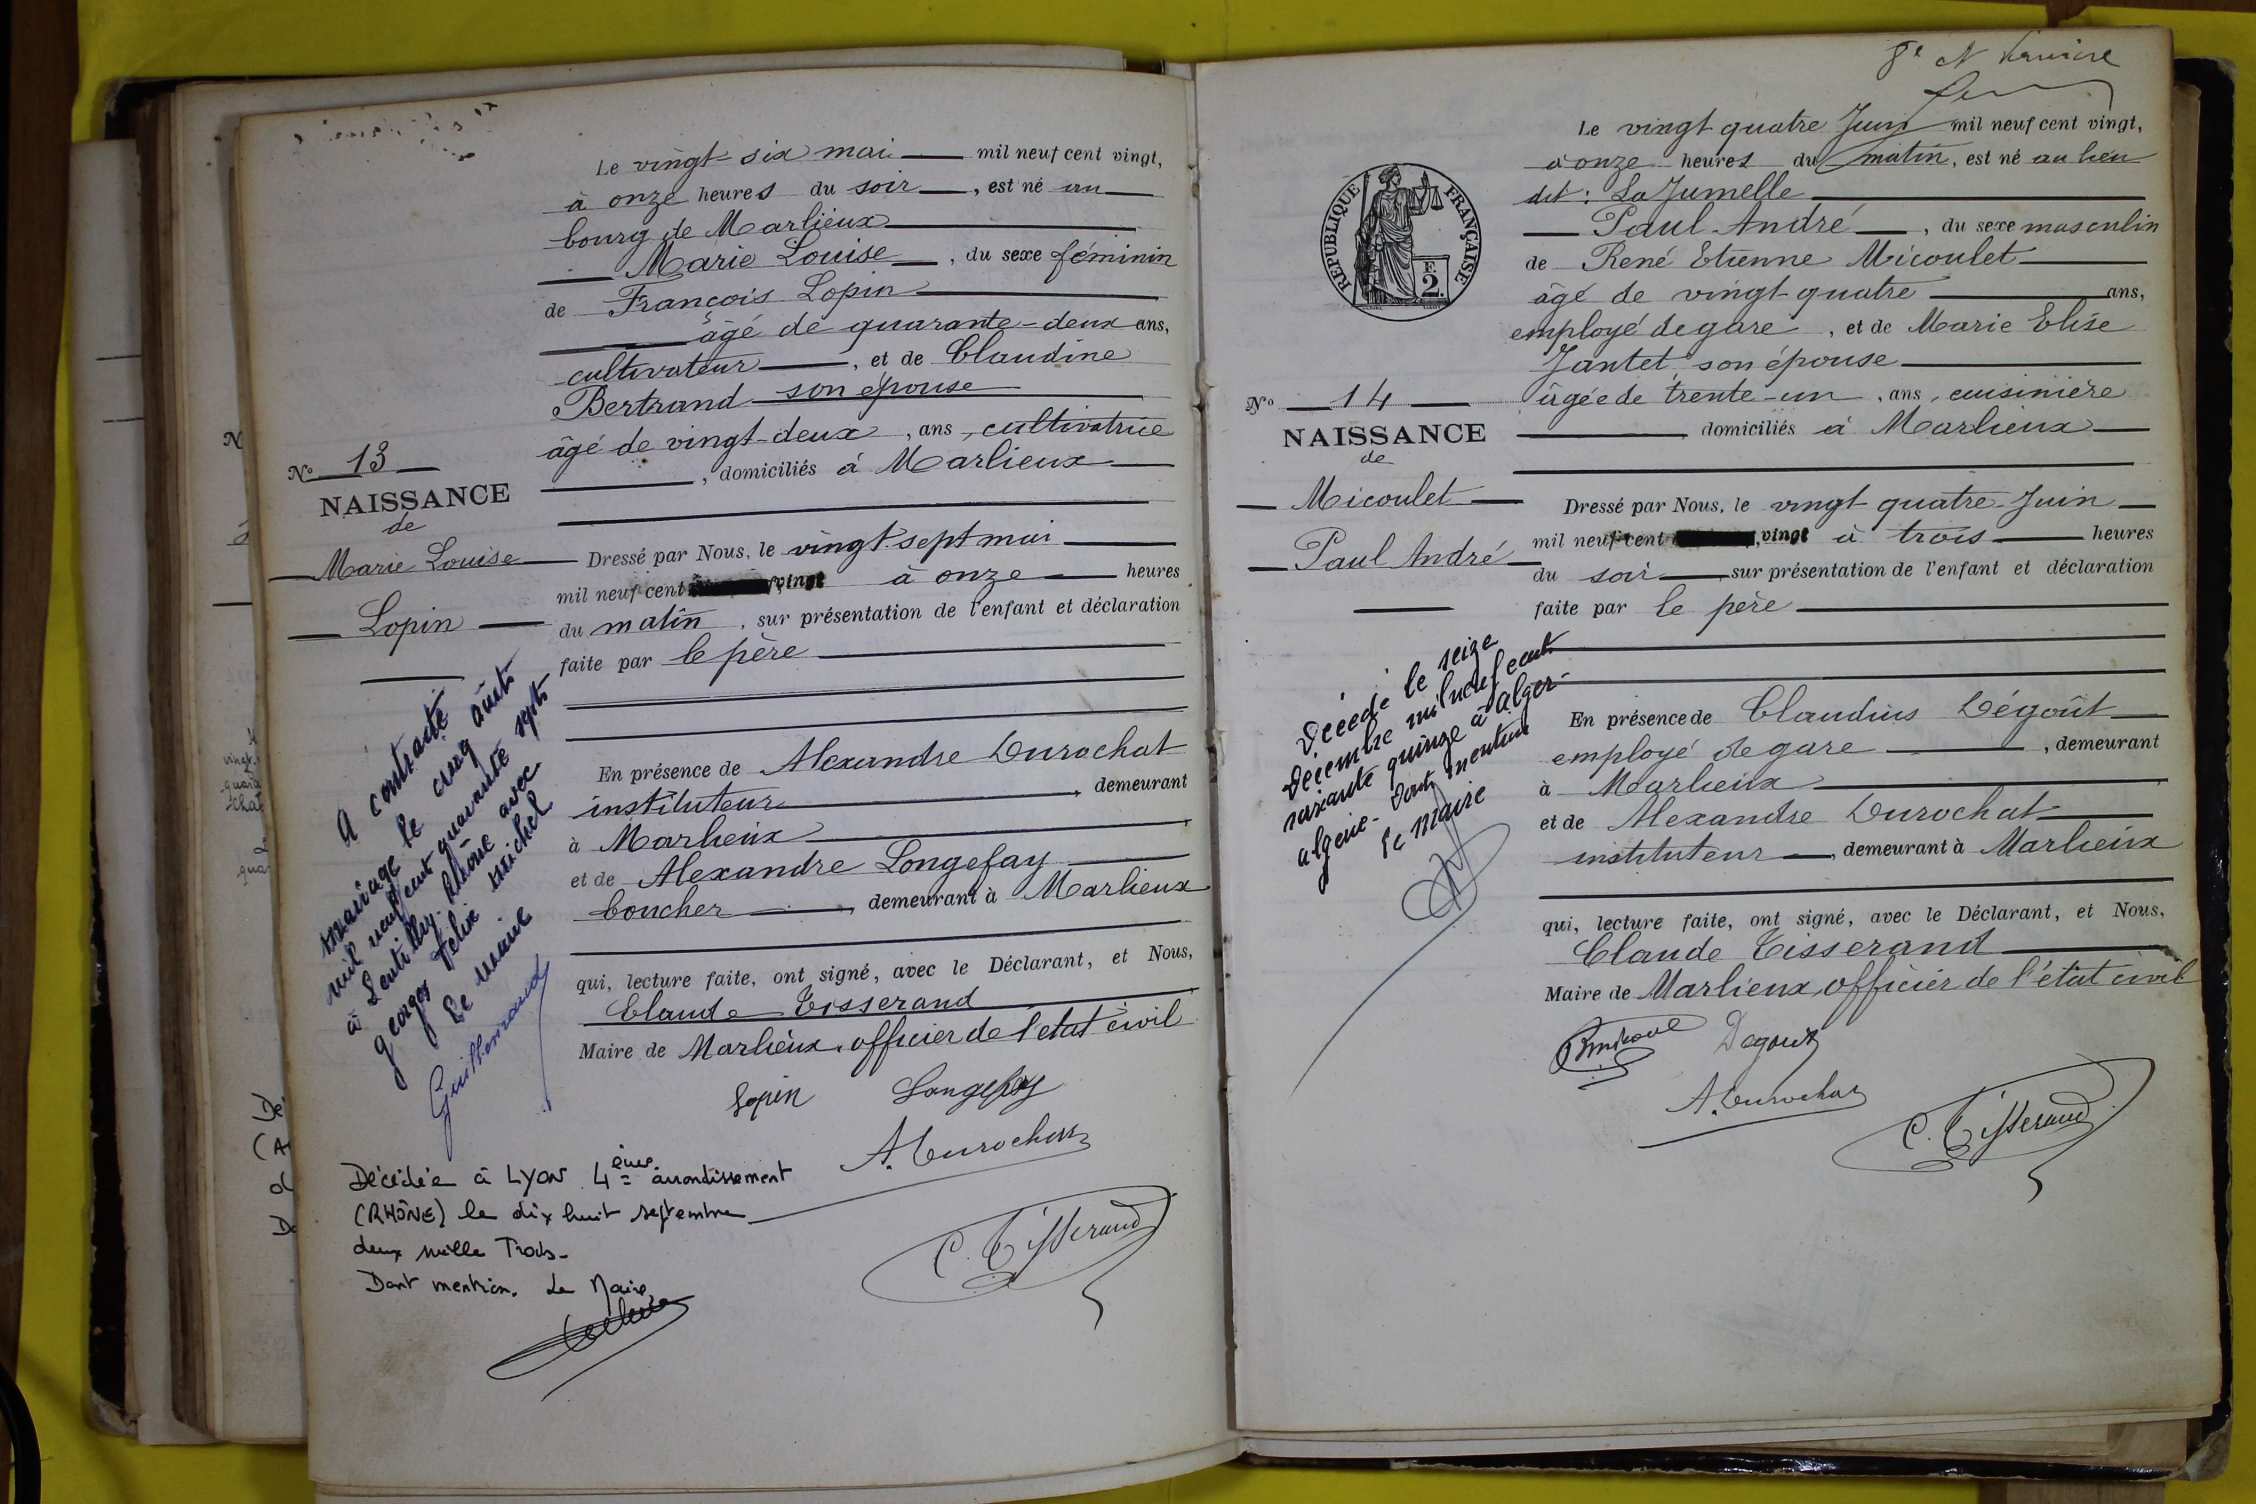 Le vingt-six mai mil neuf cent vingt,
à onze heures du soir, est né au
bourg de Marlieux
Marie Louise, du sexe féminin
de François Lopin
âgé de quarante-deux ans,
cultivateur, et de Claudine
Bertrand son épouse
âgé de vingt-deux, ans, cultivatrice
, domiciliés à Marlieux
N° 13
NAISSANCE
de
Marie Louise
Lopin
Dressé par Nous, le vingt sept mai
mil neuf cent vingt à onze heures
du matin, sur présentation de l'enfant et déclaration
faite par le père
En présence de Alexandre Durochat
instituteur, demeurant
à Marlieux
et de Alexandre Longefay
boucher, demeurant à Marlieux
qui, lecture faite, ont signé, avec le Déclarant, et Nous,
Claude Tisserand
Maire de Marlieux, officier de l'état civil
Lopin Longefay
A. Durochat
C. Tisserand
A contracté
mariage le cinq août
mil neuf cent quarante sept
à Lentilly. Rhône avec
georges Felix Michel
Le maire
Guillermaud
Décédée à LYON 4ème arrondissement
(RHÔNE) le dix huit septembre
deux mille Trois.
Dont mention. Le Maire,
8e N
Le vingt quatre Juin mil neuf cent vingt,
à onze heures du matin, est né au lieu
dit: La Jumelle
Paul André, du sexe masculin
de René Etienne Micoulet
âgé de vingt-quatre ans,
employé de gare, et de Marie Elise
Jantet, son épouse
âgée de trente-un, ans, cuisinière
domiciliés à Marlieux
REPUBLIQUE FRANÇAISE
F. 2
N° 14
NAISSANCE
de
Micoulet
Paul André
Dressé par Nous, le vingt quatre Juin
mil neuf cent vingt à trois heures
du soir, sur présentation de l'enfant et déclaration
faite par le père
En présence de Claudius Dégoût
employé de gare, demeurant
à Marlieux
et de Alexandre Durochat
instituteur, demeurant à Marlieux
qui, lecture faite, ont signé, avec le Déclarant, et Nous,
Claude Tisserand
Maire de Marlieux, officier de l'état civil
Degout
A. Durochat
C. Tisserand
Décédé le seize
Décembre mil neuf cent
soixante quinze à Alger-
algérie- Dont mention
Le Maire